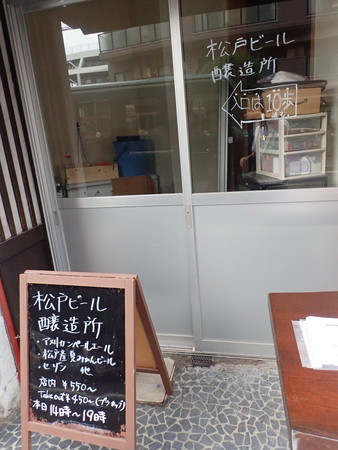 松戸ビール
醸造所
入口は10歩
松戸ビール
醸造所
・アメリカンペールエール
・松戸産夏みかんビール
・セゾン 他
店内 ¥550〜
Take out ¥450〜(プラカップ)
本日14時〜19時